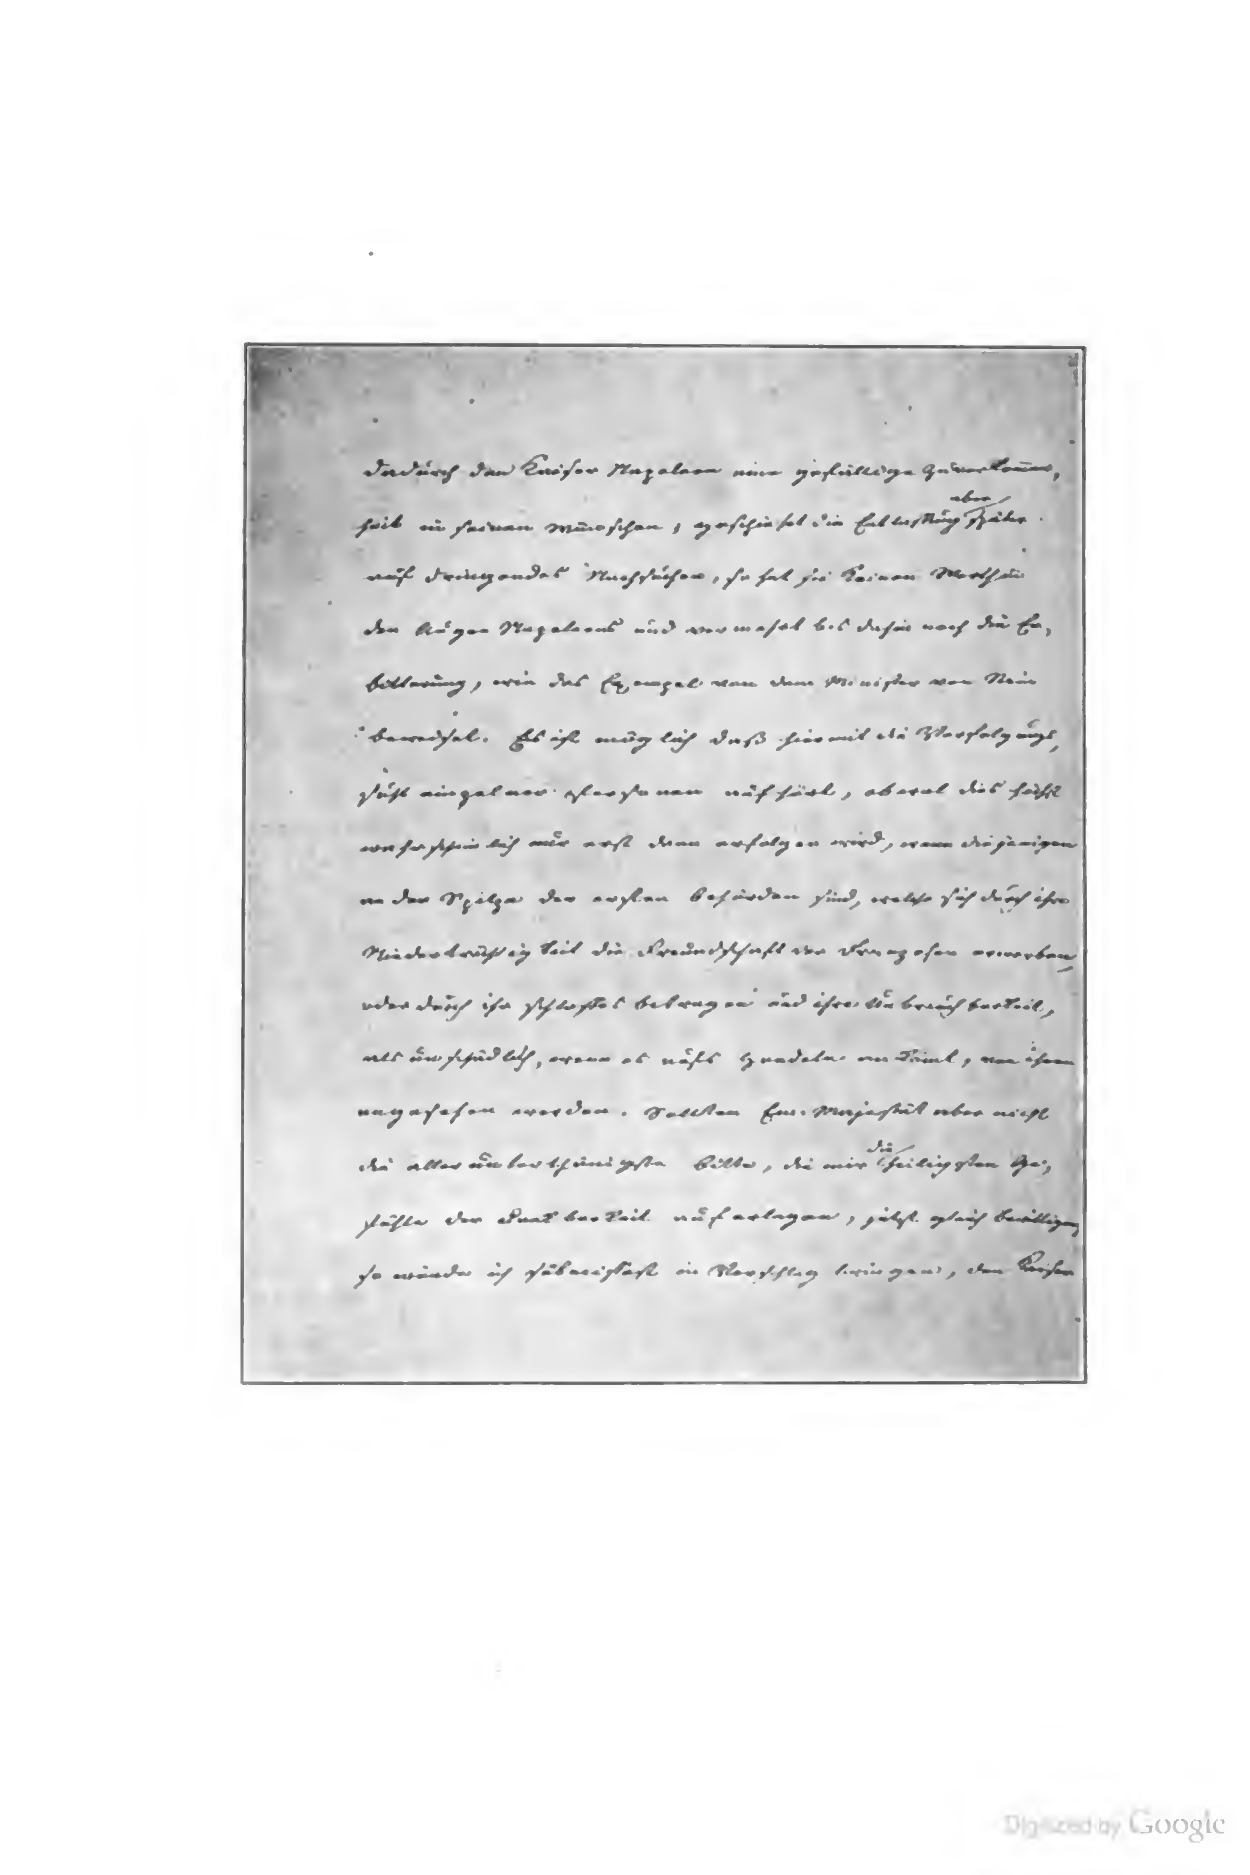 dadurch den Kaiser Napoleon eine gefällige Zuvorkommen,
heit in seinen Wünschen, geschiehet die Entlassung aber später
auf dringendes Nachsuchen, so hat sie keinen Werth in
den Augen Napoleons und vermehrt bis dahin noch die Er,
bitterung, wie das Exempel von dem Minister von Stein
beweiset. Es ist möglich daß hiermit die Verfolgungs,
sucht einzelner Personen aufhört, obwol dies höchst
wahrscheinlich nur erst dann erfolgen wird, wenn diejenigen
an der Spitze der ersten behörden sind, welche sich durch ihre
Niederträchtigkeit die Freundschaft der Franzosen erworben
oder durch ihr schlaffes betragen und ihre Unbrauchbarkeit,
als unschädlich, wenn es aufs Handeln ankömt, von ihnen
angesehen werden. Sollten Ew. Majestät aber nicht
die allerunterthänigste bitte, die mir die heiligsten Ge,
fühle der Dankbarkeit auferlegen, jetzt gleich bewilligen,
so würde ich in Vorschlag bringen, den Kaiser
Digitized by Google